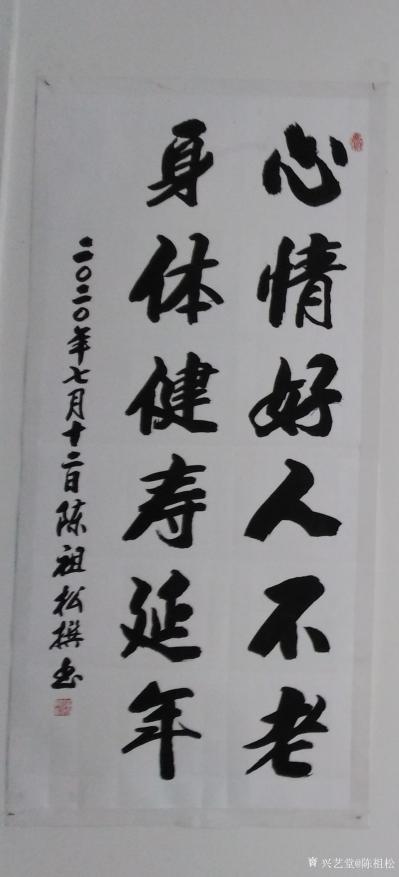 心情好人不老
身体健寿延年
二〇二〇年七月十二日陈祖松撰书
兴艺堂@陈祖松